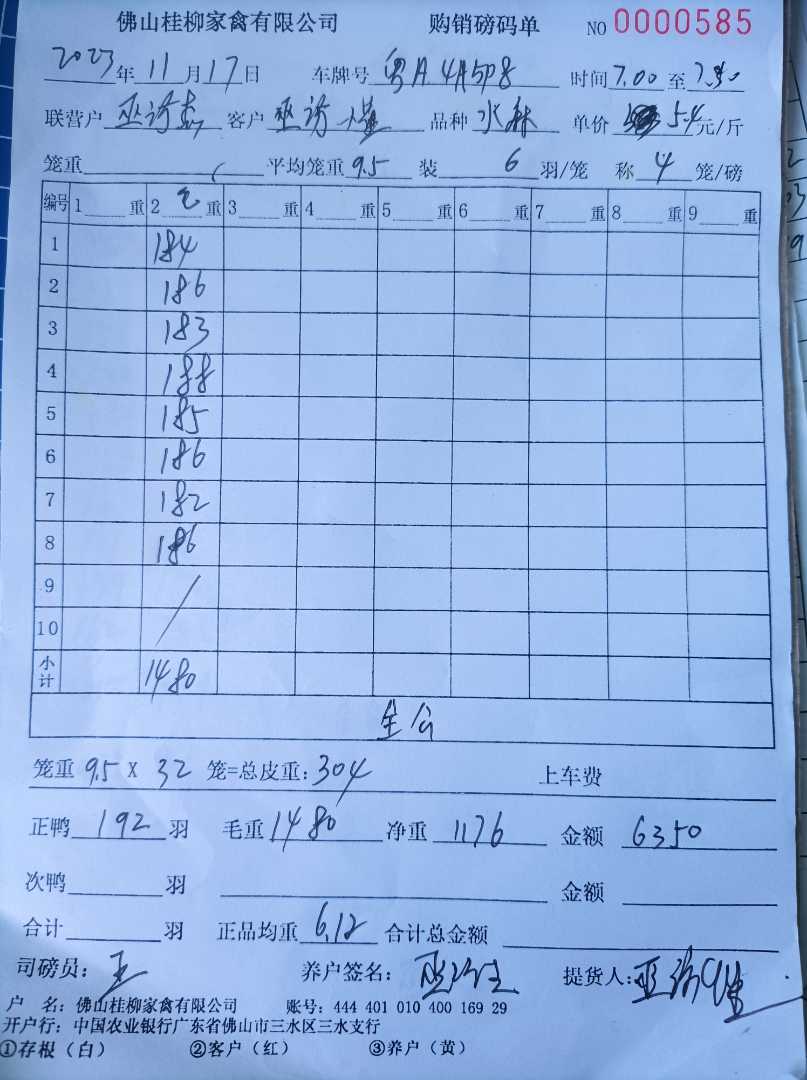 佛山桂柳家禽有限公司 购销磅码单 NO 0000585
2023年 11月17日 车牌号 粤A.4A5P8 时间7.00至7.30
联营户 巫 客户 巫 品种 水 单价 5.4元/斤
笼重 平均笼重9.5 装 6 羽/笼 称 4 笼/磅
编号 1 重 2 重 3 重 4 重 5 重 6 重 7 重 8 重 9 重
1 184
2 186
3 183
4 188
5 185
6 186
7 182
8 186
9 /
10
小计 1480
全公
笼重 9.5 X 32 笼=总皮重:304 上车费
正鸭 192 羽 毛重1480 净重 1176 金额 6350
次鸭 羽 金额
合计 羽 正品均重 6.12 合计总金额
司磅员: 王 养户签名: 提货人:
户 名: 佛山桂柳家禽有限公司 账号: 444 401 010 400 169 29
开户行: 中国农业银行广东省佛山市三水区三水支行
①存根(白) ②客户(红) ③养户(黄)